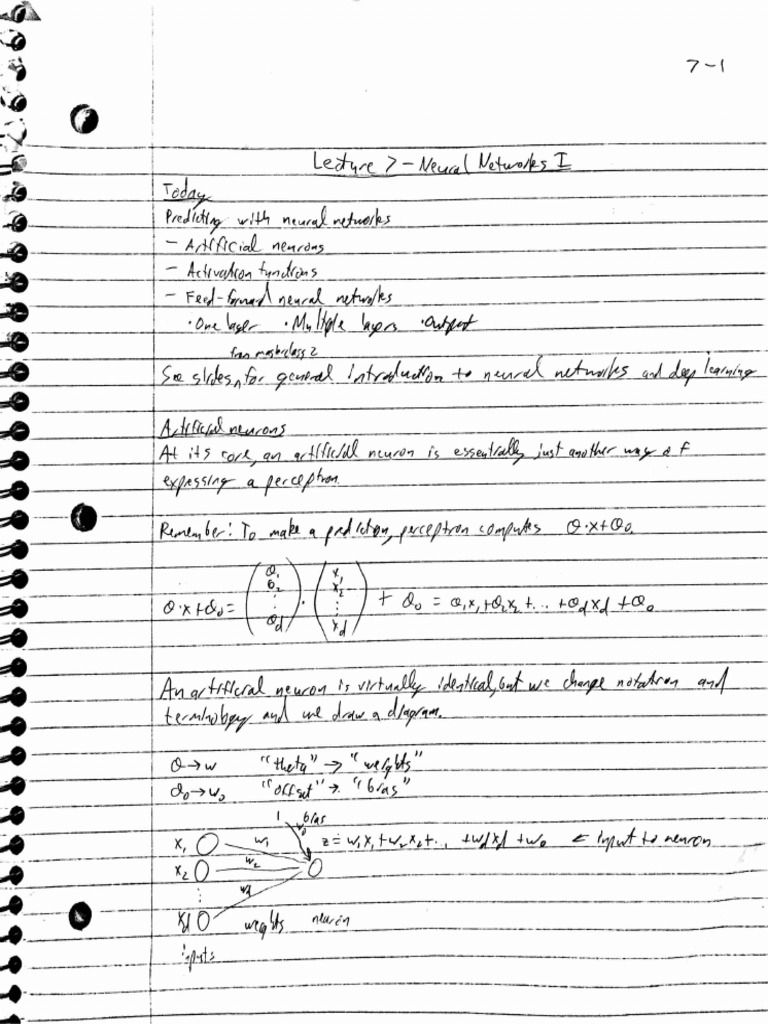 7-1
Lecture 7 - Neural Networks I
Today
Predicting with neural networks
- Artificial neurons
- Activation functions
- Feed-forward neural networks
· One layer · Multiple layers · Output
from masterclass 2
See slides, for general introduction to neural networks and deep learning
Artificial neurons
At its core, an artificial neuron is essentially just another way of
expressing a perceptron.
Remember: To make a prediction, perceptron computes θ·x+θ₀.
θ·x+θ₀ = (θ₁ θ₂ ⋮ θd) · (x₁ x₂ ⋮ xd) + θ₀ = θ₁x₁+θ₂x₂+... +θdxd+θ₀
An artificial neuron is virtually identical, but we change notation and
terminology and we draw a diagram.
θ→w "theta" → "weights"
θ₀→w₀ "offset" → "bias"
1 bias
w₀
x₁ w₁ z = w₁x₁+w₂x₂+... +wdxd+w₀ ← input to neuron
x₂ w₂
⋮
wd
xd weights neuron
inputs